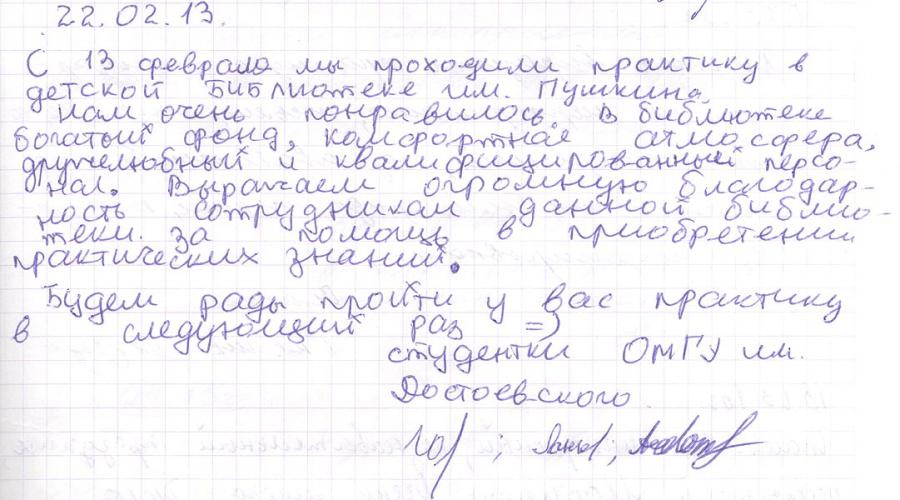 22.02.13.
С 13 февраля мы проходили практику в
детской Библиотеке им. Пушкина.
Нам очень понравилось. В библиотеке
богатый фонд, комфортная атмосфера,
дружелюбный и квалифицированный персо-
нал. Выражаем огромную благодар-
ность сотрудникам данной библио-
теки за помощь в приобретении
практических знаний.
Будем рады пройти у вас практику
в следующий раз =)
студентки ОмГУ им.
Достоевского